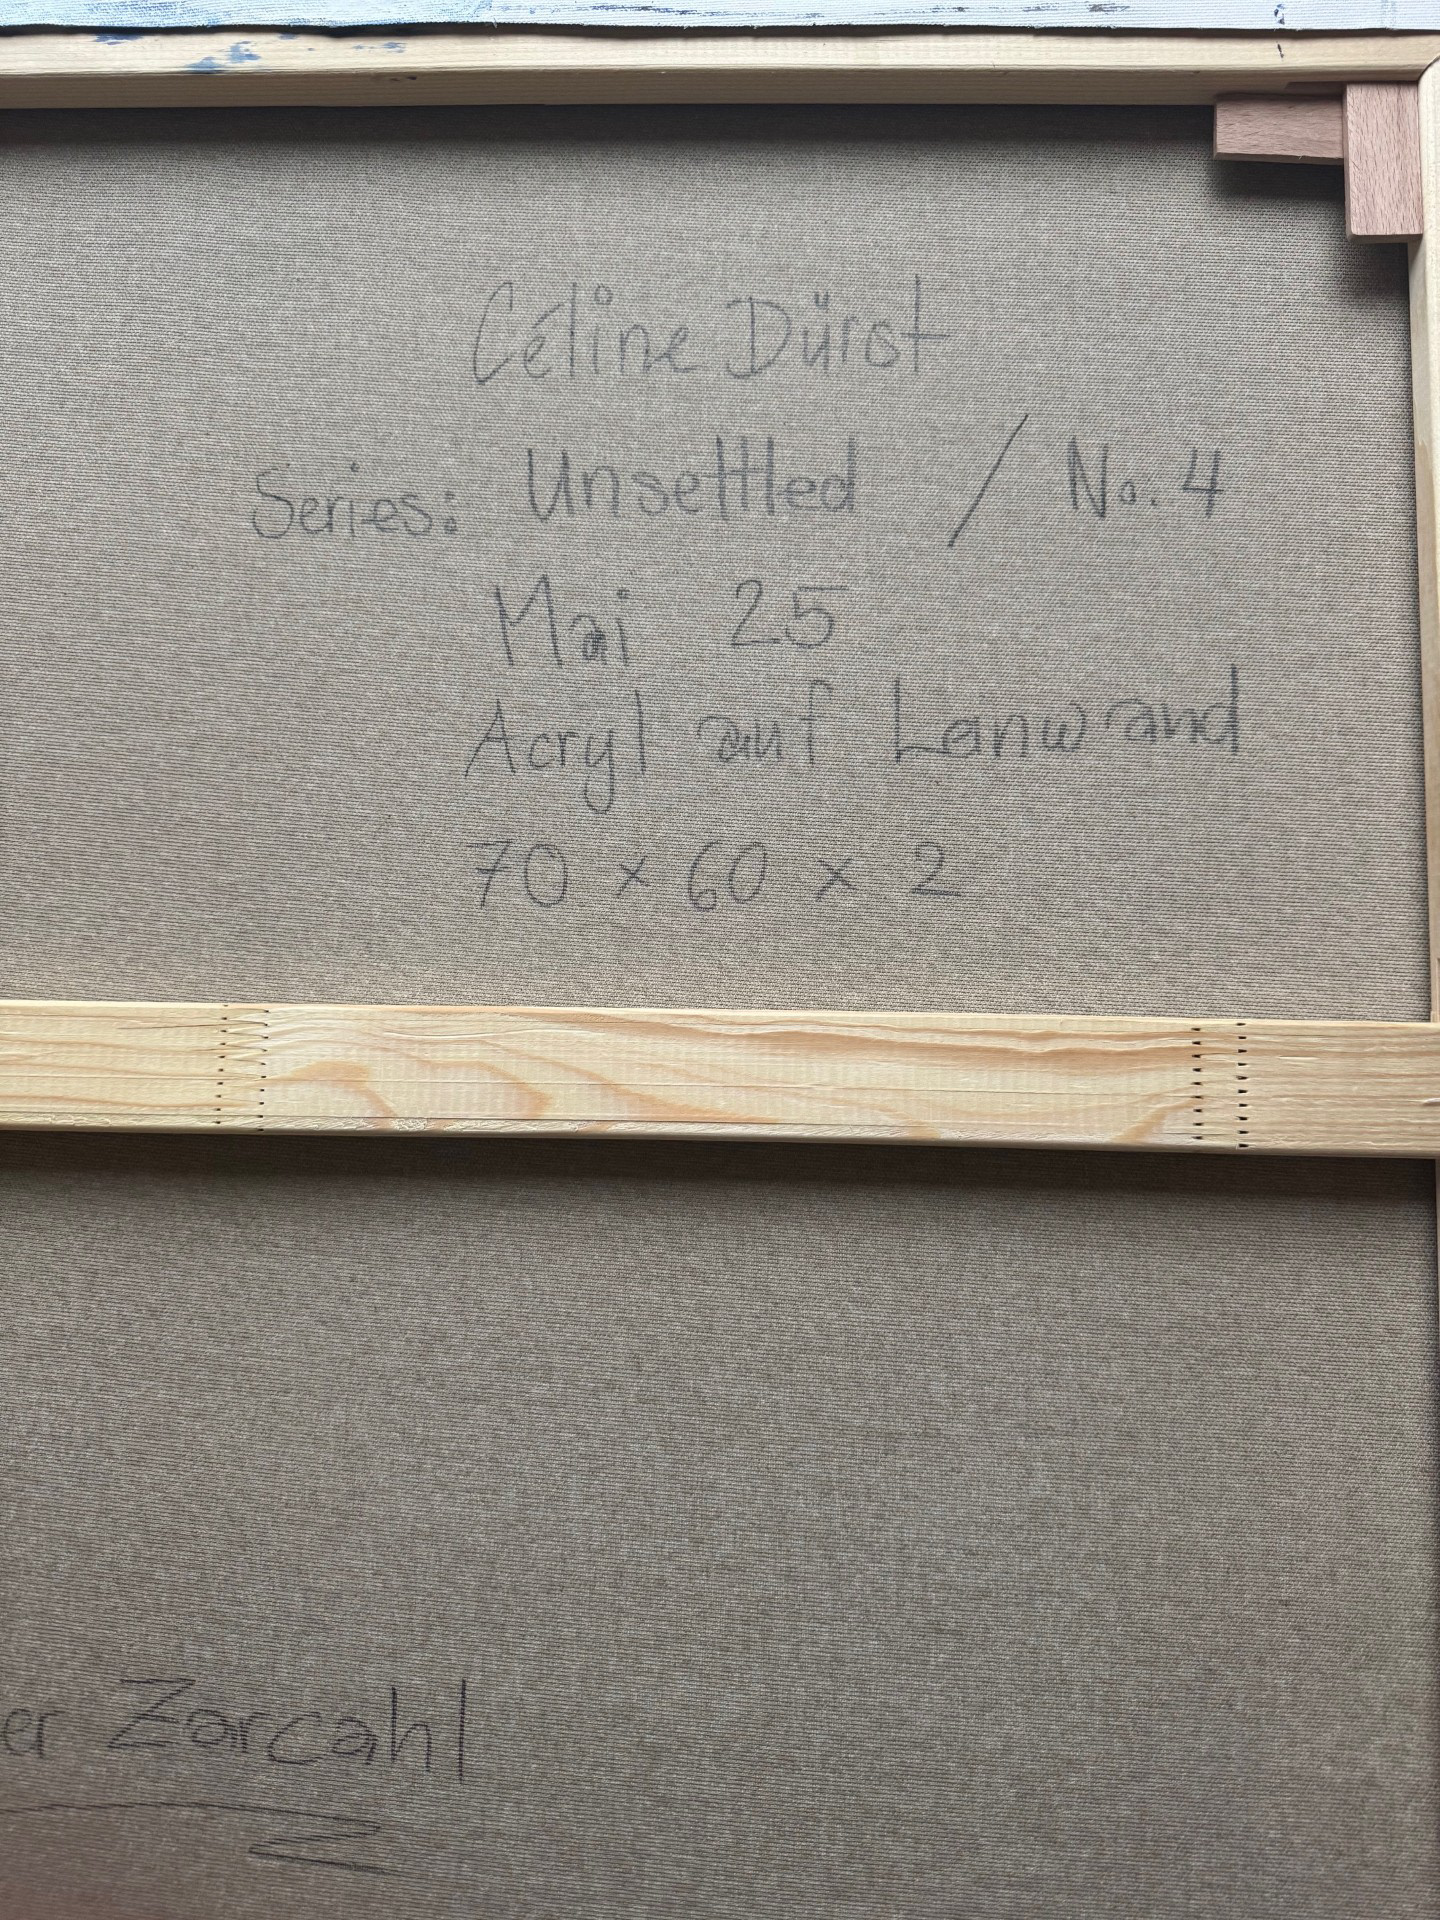 Céline Dürst
Series: Unsettled / No. 4
Mai 25
Acryl auf Lanwand
70 x 60 x 2
er Zarcahl